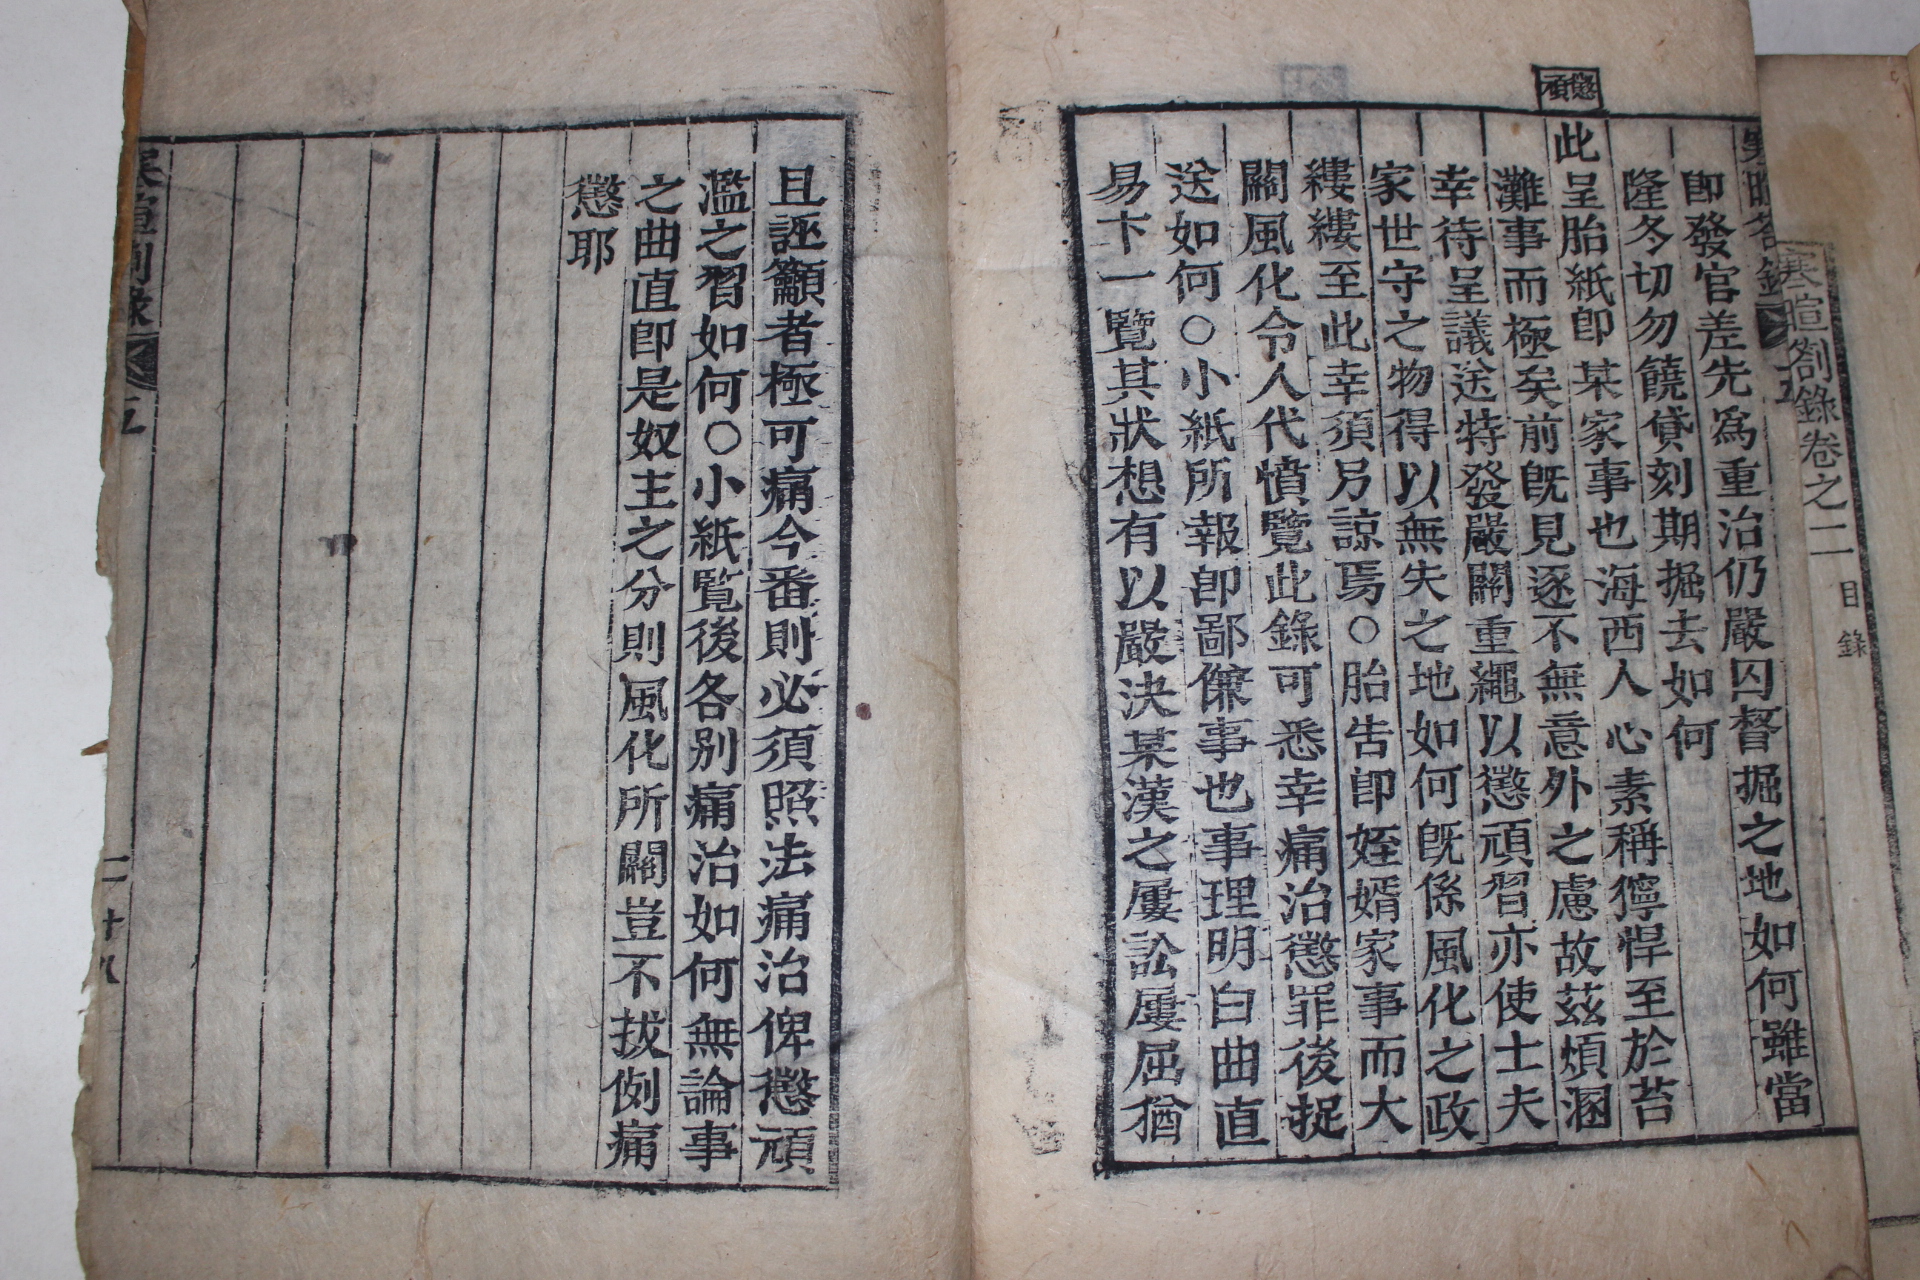 寒暄劄錄卷之二
目錄
卽發官差先爲重治仍嚴囚督掘之地如何雖當
隆冬切勿饒貸刻期掘去如何
懲頑
此呈胎紙卽某家事也海西人心素稱獰悍至於苔
灘事而極矣前旣見逐不無意外之慮故茲煩溷
幸待呈議送特發嚴關重繩以懲頑習亦使士夫
家世守之物得以無失之地如何旣係風化之政
縷縷至此幸須另諒焉○胎告卽姪婿家事而大
關風化令人代憤覽此錄可悉幸痛治懲罪後捉
送如何○小紙所報卽鄙傔事也事理明白曲直
易卞一覽其狀想有以嚴決某漢之屢訟屢屈猶
且誣籲者極可痛今番則必須照法痛治俾懲頑
濫之習如何○小紙覽後各別痛治如何無論事
之曲直卽是奴主之分則風化所關豈不拔例痛
懲耶
寒暄劄錄
五
二十八